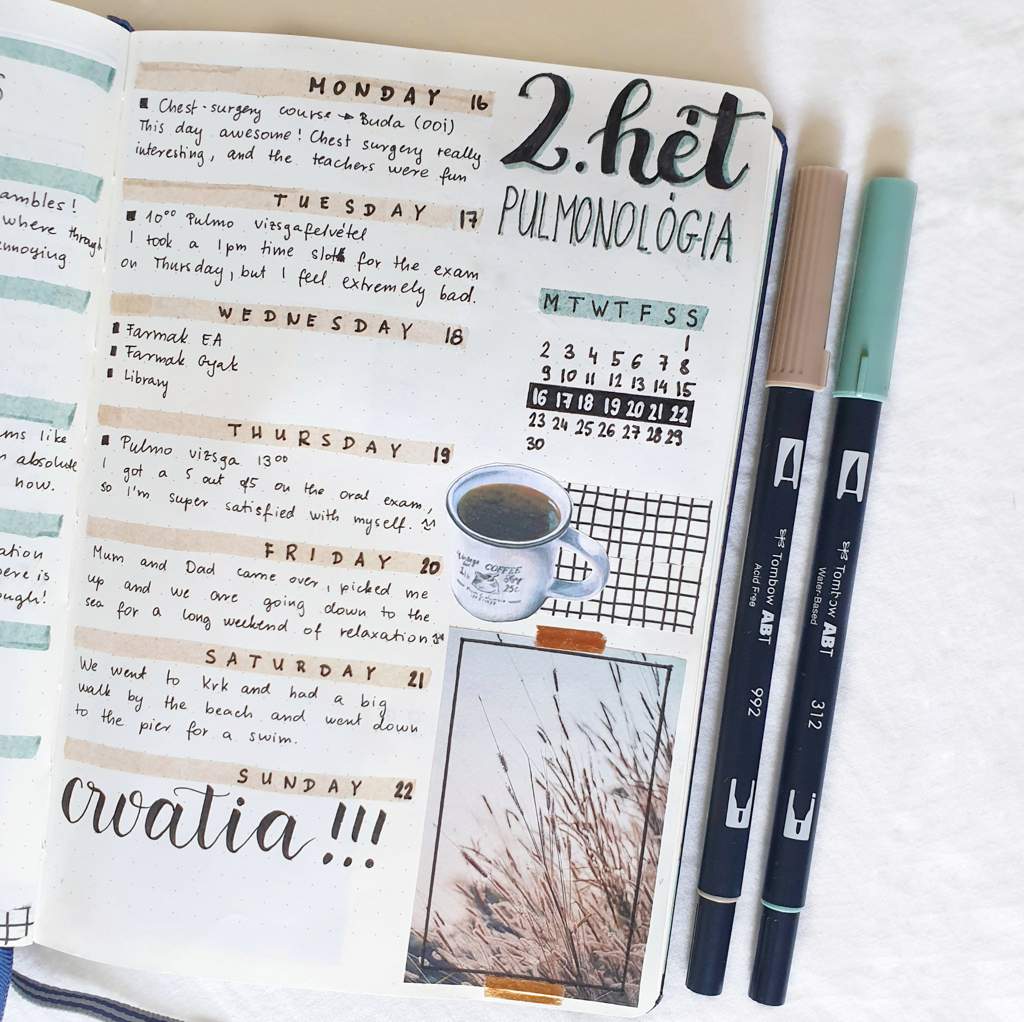 S
ambles!
where through
ennoying
ms like
absolute
now.
ation
ere is
ough!
MONDAY 16
Chest-surgery course → Buda (OOI)
This day awesome! Chest surgery really
interesting, and the teachers were fun
TUESDAY 17
10⁰⁰ Pulmo vizsgafelvétel
I took a 1pm time slot for the exam
on Thursday, but I feel extremely bad.
WEDNESDAY 18
Farmak EA
Farmak Gyak
Library
THURSDAY 19
Pulmo vizsga 13⁰⁰
I got a 5 out of 5 on the oral exam,
so I'm super satisfied with myself.
FRIDAY 20
Mum and Dad came over, picked me
up and we are going down to the
sea for a long weekend of relaxation
SATURDAY 21
We went to Krk and had a big
walk by the beach and went down
to the pier for a swim.
SUNDAY 22
croatia!!!
2. hét
PULMONOLÓGIA
M T W T F S S
1
2 3 4 5 6 7 8
9 10 11 12 13 14 15
16 17 18 19 20 21 22
23 24 25 26 27 28 29
30
COFFEE
25¢
Tombow ABT
Acid Free
992
Tombow ABT
Water-Based
312